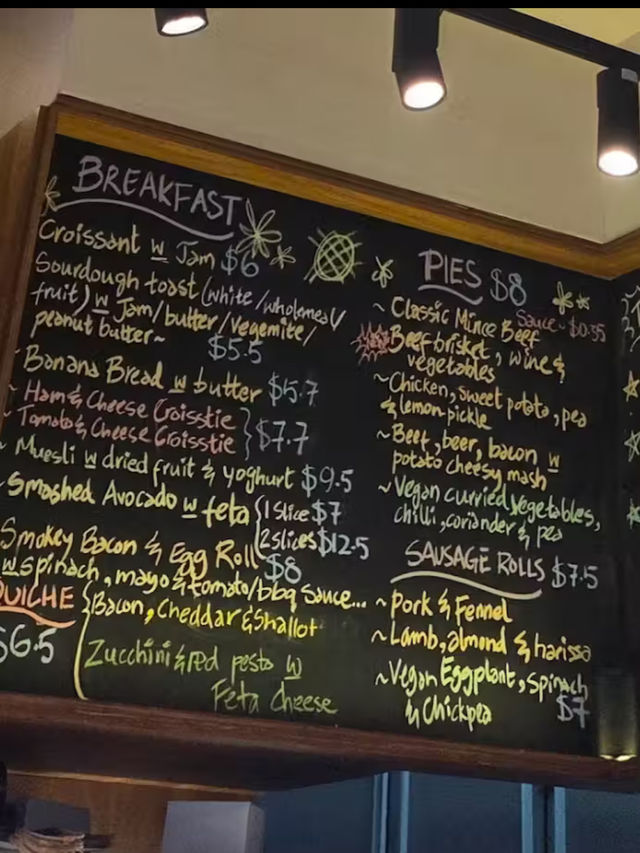 BREAKFAST
Croissant w Jam $6
Sourdough toast (white/wholemeal/
fruit) w Jam/butter/vegemite/
peanut butter~
$5.5
Banana Bread w butter $5.7
~ Ham & Cheese Croisstie
~ Tomato & Cheese Croisstie } $7.7
~ Muesli w dried fruit & yoghurt $9.5
~ Smashed Avocado w feta { 1 Slice $7
2 slices $12.5
Smokey Bacon & Egg Roll $8
w spinach, mayo & tomato/bbq sauce...
QUICHE
$6.5
{ Bacon, Cheddar & Shallot
Zucchini & red pesto w
Feta Cheese
PIES $8
Sauce - $0.55
~ Classic Mince Beef
Beef brisket, wine &
vegetables
~ Chicken, sweet potato, pea
& lemon pickle
~ Beef, beer, bacon w
potato cheesy mash
~ Vegan curried vegetables,
chilli, coriander & pea
SAUSAGE ROLLS $7.5
~ Pork & Fennel
~ Lamb, almond & harissa
~ Vegan Eggplant, Spinach
& Chickpea $7